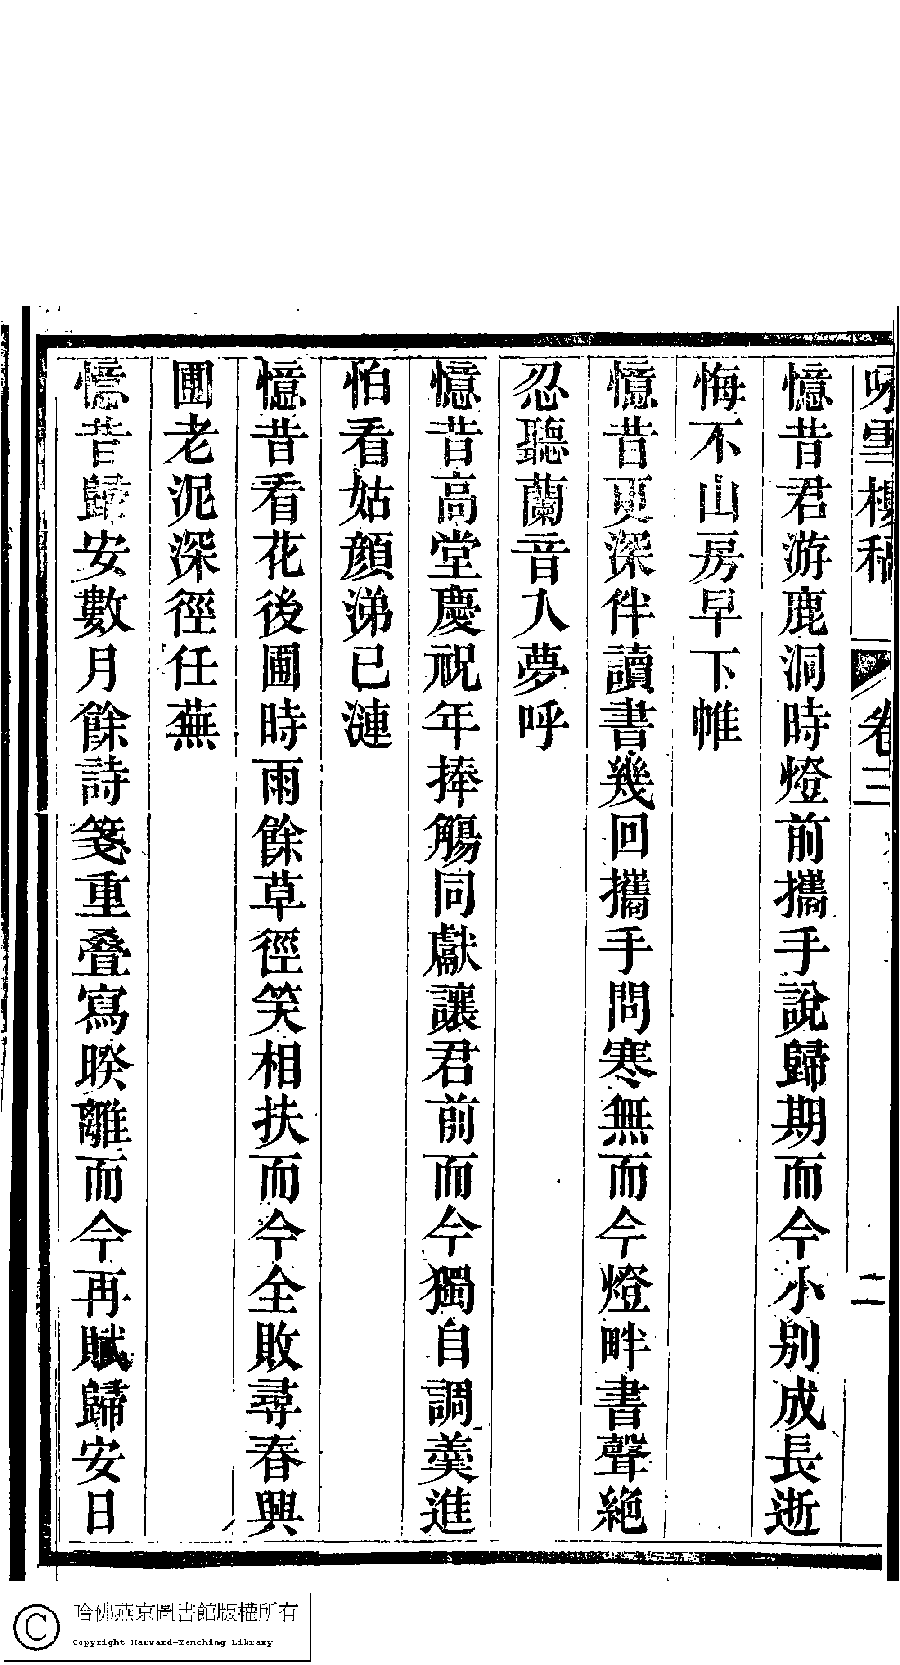 咏雪樓稿 卷三 二
憶昔君游鹿洞時燈前攜手說歸期而今小别成長逝
悔不山房早下帷
憶昔更深伴讀書幾回攜手問寒無而今燈畔書聲絶
忍聽蘭音入夢呼
憶昔高堂慶祝年捧觴同獻讓君前而今獨自調羹進
怕看姑顔涕已漣
憶昔看花後圃時雨餘草徑笑相扶而今全敗尋春興
圃老泥深徑任蕪
憶昔歸安數月餘詩箋重叠寫睽離而今再賦歸安日
哈佛燕京圖書館版權所有
Copyright Harvard-Yenching Library